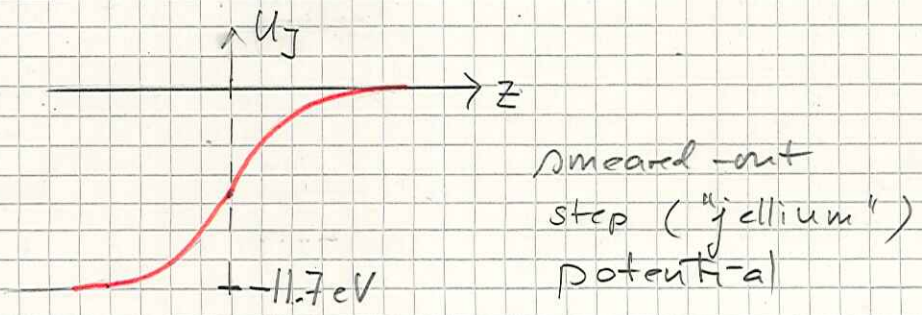 U_J
z
smeared-out
step ("jellium")
potential
-11.7 eV